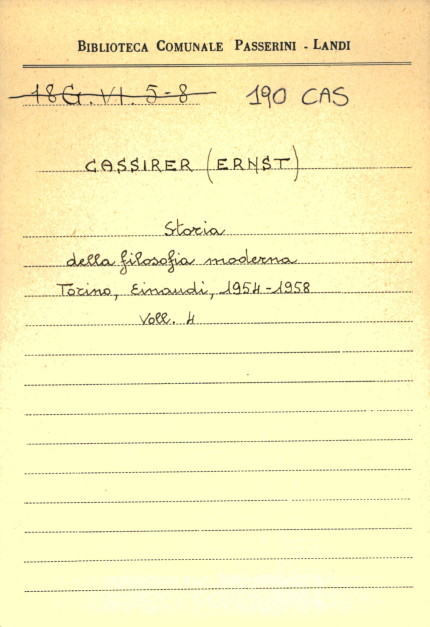 BIBLIOTECA COMUNALE PASSERINI - LANDI
18G.VI.5-8 190 CAS
CASSIRER (ERNST)
Storia
della filosofia moderna
Torino, Einaudi, 1954-1958
Voll. 4